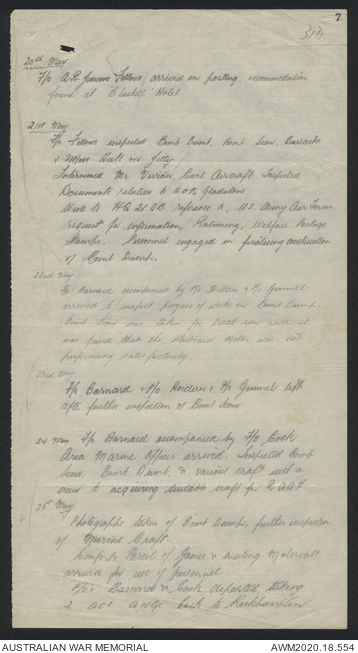 7
20th May
F/o A.R. Fellows, arrived on posting, accommodation
found at Blushell Hotel
21st May
F/o Fellows inspected Bomb Dump, Bomb Scow, Barracks
& Mess Huts and Jetty.
Interviewed Mr Vivian, Civil Aircraft. Inspected
Documents relative to A.O.B. Gladstone
Wrote to HQ reference to U.S. Army Air Force
request for information, Rationing, Welfare, Postage
Stamps. Personnel engaged in finalising construction
of Bomb Dump.
22nd May
F/Lt Barnard accompanied by P/o Hordern & P/o Gemmel
arrived to inspect progress of work on Bomb Dump.
Bomb Scow was taken for trial run and it
was found that the starboard motor was not
performing satisfactorily.
23rd May
F/Lt Barnard & P/o Hordern & P/o Gemmel left
after further inspection of Bomb Scow.
24 May F/Lt Barnard accompanied by F/o Cook
Area Marine Officer arrived. Inspected Bomb
Scow, Bomb Dump, & various craft with a
view to acquiring suitable craft for R.A.A.F.
25th May
Photographs taken of Bomb Dump, further inspection
of Marine Craft.
Comforts Parcel of Games & Writing Materials
arrived for use of personnel.
Barnard & Cook departed, taking
2 back to Rockhampton
AUSTRALIAN WAR MEMORIAL
AWM2020.18.554